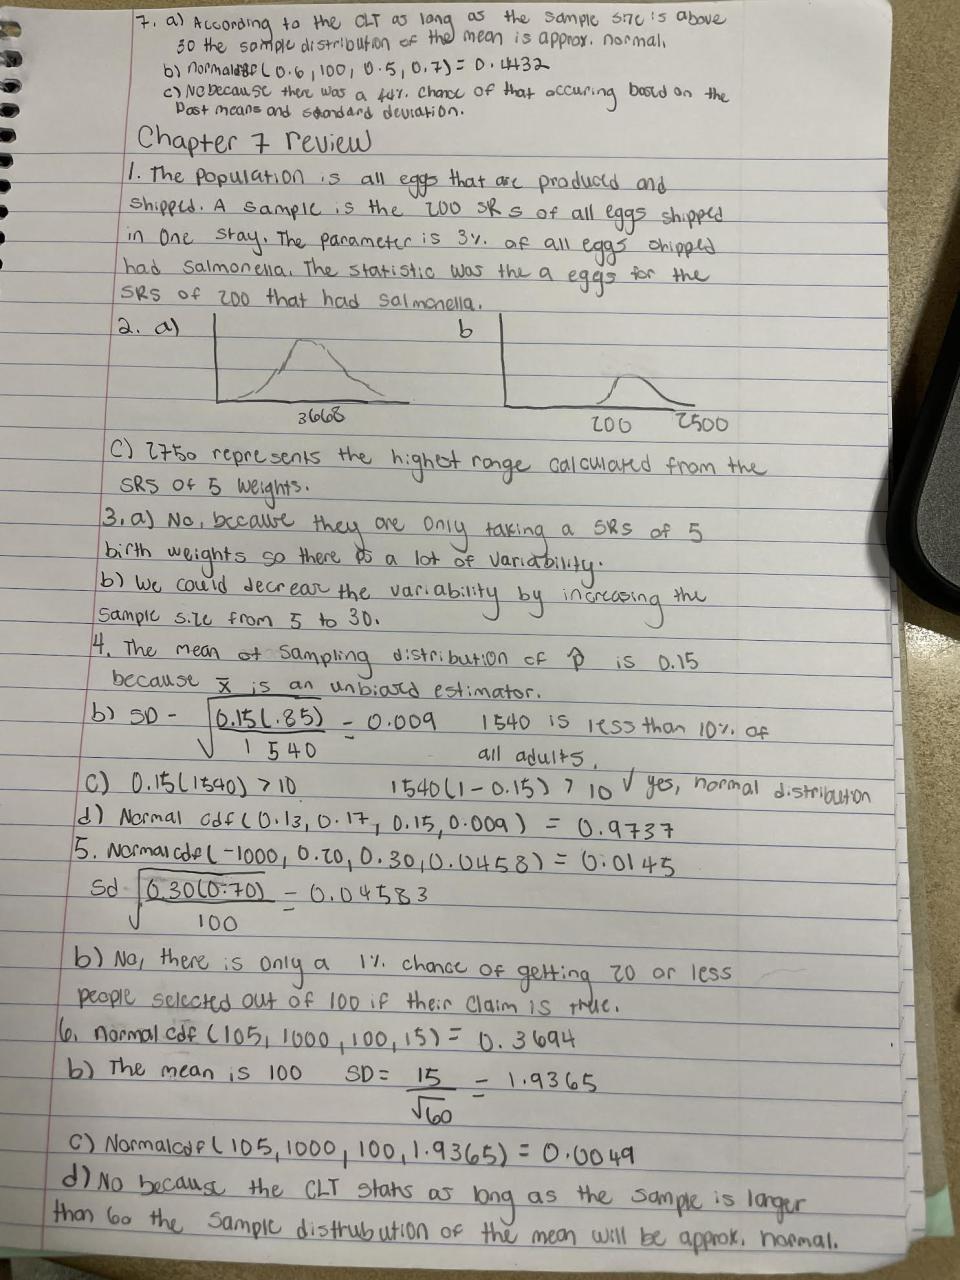 7. a) According to the CLT as long as the sample size is above
30 the sample distribution of the mean is approx. normal.
b) normalcdf(0.6, 100, 0.5, 0.7) = 0.4432
c) No because there was a 44% chance of that occuring based on the
past means and standard deviation.
Chapter 7 review
1. The population is all eggs that are produced and
shipped. A sample is the 200 SRS of all eggs shipped
in one stay. The parameter is 3% of all eggs shipped
had salmonella. The statistic was the 9 eggs for the
SRS of 200 that had salmonella.
2. a) b
3668 200 2500
C) 2750 represents the highest range calculated from the
SRS of 5 weights.
3. a) No, because they are only taking a SRS of 5
birth weights so there is a lot of variability.
b) We could decrease the variability by increasing the
sample size from 5 to 30.
4. The mean of sampling distribution of p̂ is 0.15
because x̄ is an unbiased estimator.
b) SD - √0.15(.85)/1540 = 0.009 1540 is less than 10% of
all adults.
c) 0.15(1540) > 10 1540(1-0.15) > 10 √ yes, normal distribution
d) Normal cdf(0.13, 0.17, 0.15, 0.009) = 0.9737
5. Normalcdf(-1000, 0.20, 0.30, 0.0458) = 0.0145
Sd √0.30(0.70)/100 = 0.04583
b) No, there is only a 1% chance of getting 20 or less
people selected out of 100 if their claim is true.
6. normal cdf(105, 1000, 100, 15) = 0.3694
b) The mean is 100 SD = 15/√60 = 1.9365
c) Normalcdf(105, 1000, 100, 1.9365) = 0.0049
d) No because the CLT stats as long as the sample is larger
than 60 the sample distrubution of the mean will be approx. normal.